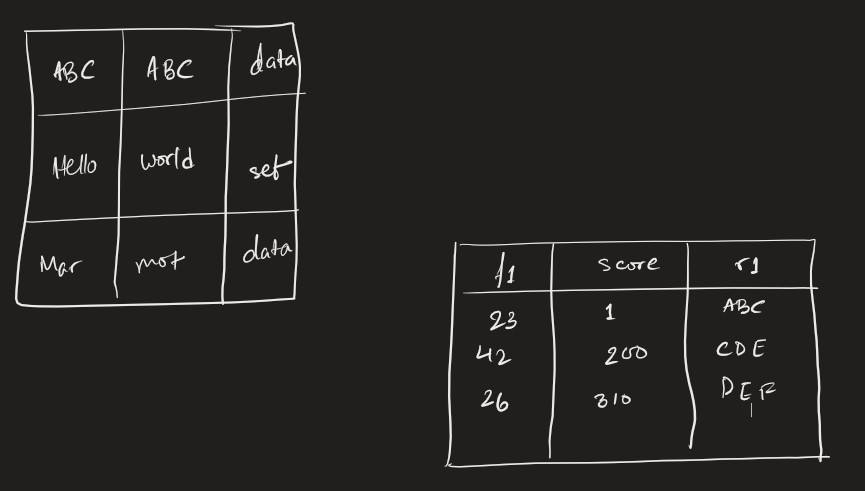 ABC ABC data
Hello world set
Mar mot data
f1 score r1
23 1 ABC
42 200 CDE
26 310 DEF